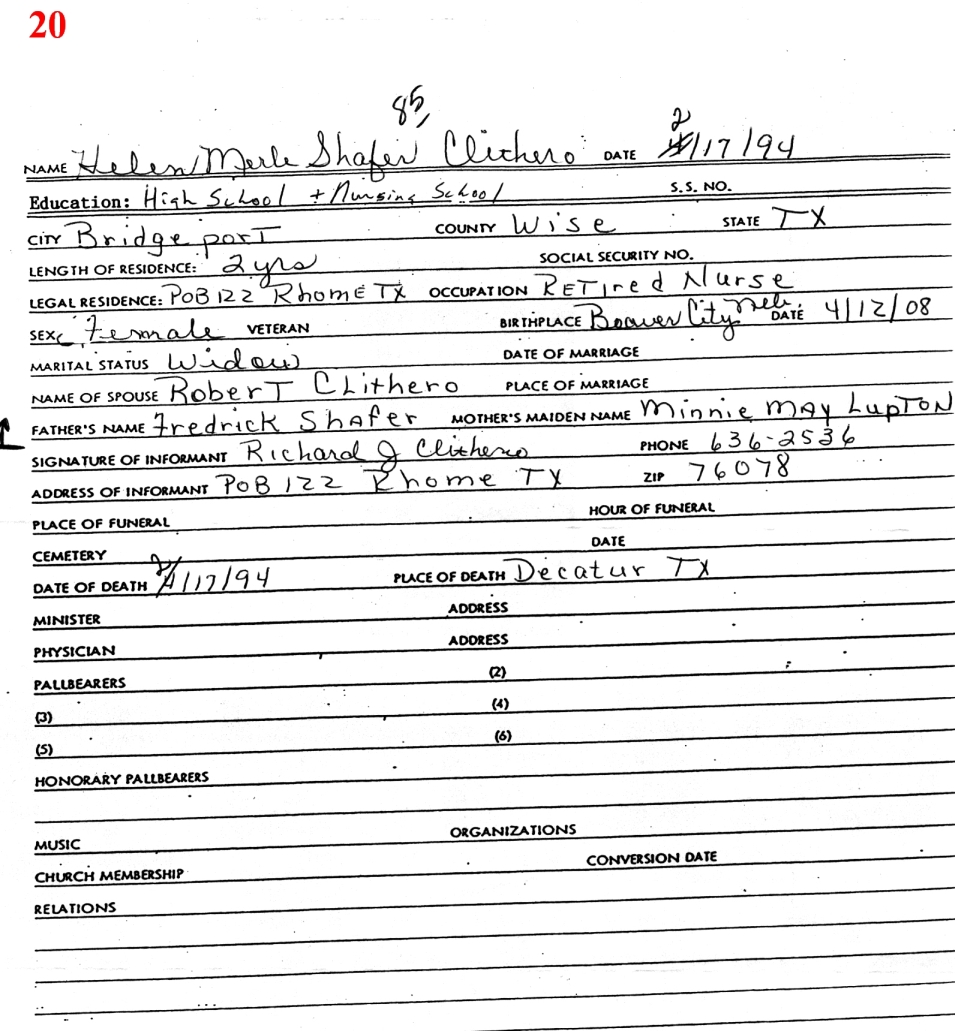 20
85
NAME Helen Merle Shafer Clithero DATE 2/17/94
Education: High School + Nursing School S.S. NO.
CITY Bridgeport COUNTY Wise STATE TX
LENGTH OF RESIDENCE: 2 yrs SOCIAL SECURITY NO.
LEGAL RESIDENCE: POB 122 Rhome TX OCCUPATION RETired Nurse
SEX Female VETERAN BIRTHPLACE Beaver City Neb. DATE 4/12/08
MARITAL STATUS Widow DATE OF MARRIAGE
NAME OF SPOUSE RoberT CLithero PLACE OF MARRIAGE
FATHER'S NAME Fredrick ShAfer MOTHER'S MAIDEN NAME Minnie MAY LupTON
SIGNATURE OF INFORMANT Richard J Clithero PHONE 636-2536
ADDRESS OF INFORMANT POB 122 Rhome TX ZIP 76078
PLACE OF FUNERAL HOUR OF FUNERAL
CEMETERY DATE
DATE OF DEATH 2/17/94 PLACE OF DEATH Decatur TX
MINISTER ADDRESS
PHYSICIAN ADDRESS
PALLBEARERS (2)
(3) (4)
(5) (6)
HONORARY PALLBEARERS
MUSIC ORGANIZATIONS
CHURCH MEMBERSHIP CONVERSION DATE
RELATIONS